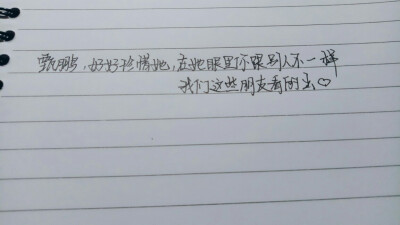 甄鹏，好好珍惜她，在她眼里你跟别人不一样
我们这些朋友看的出♡